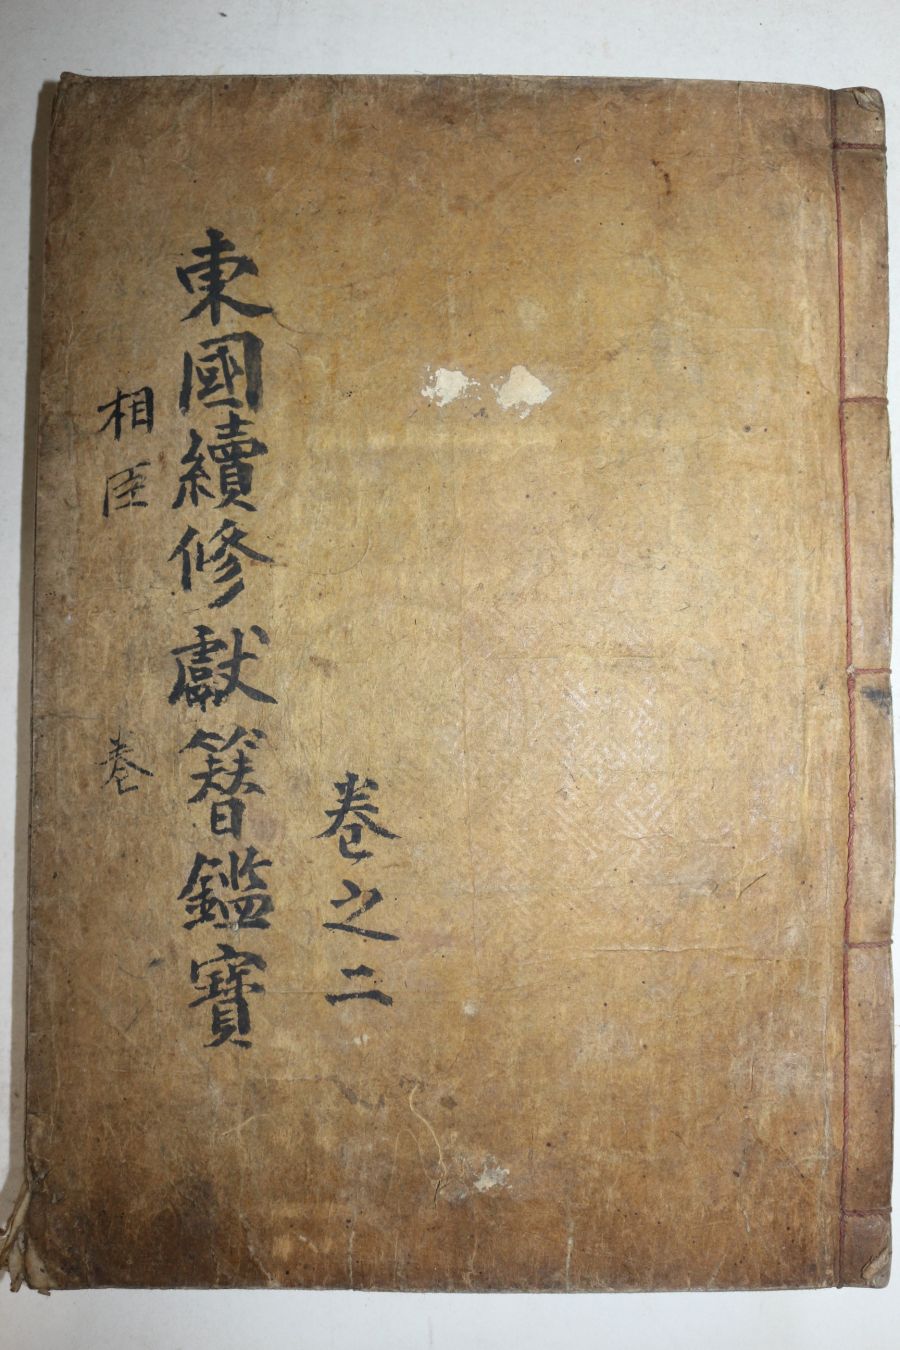 卷之二
東國續修獻簪鑑寶
相臣
卷